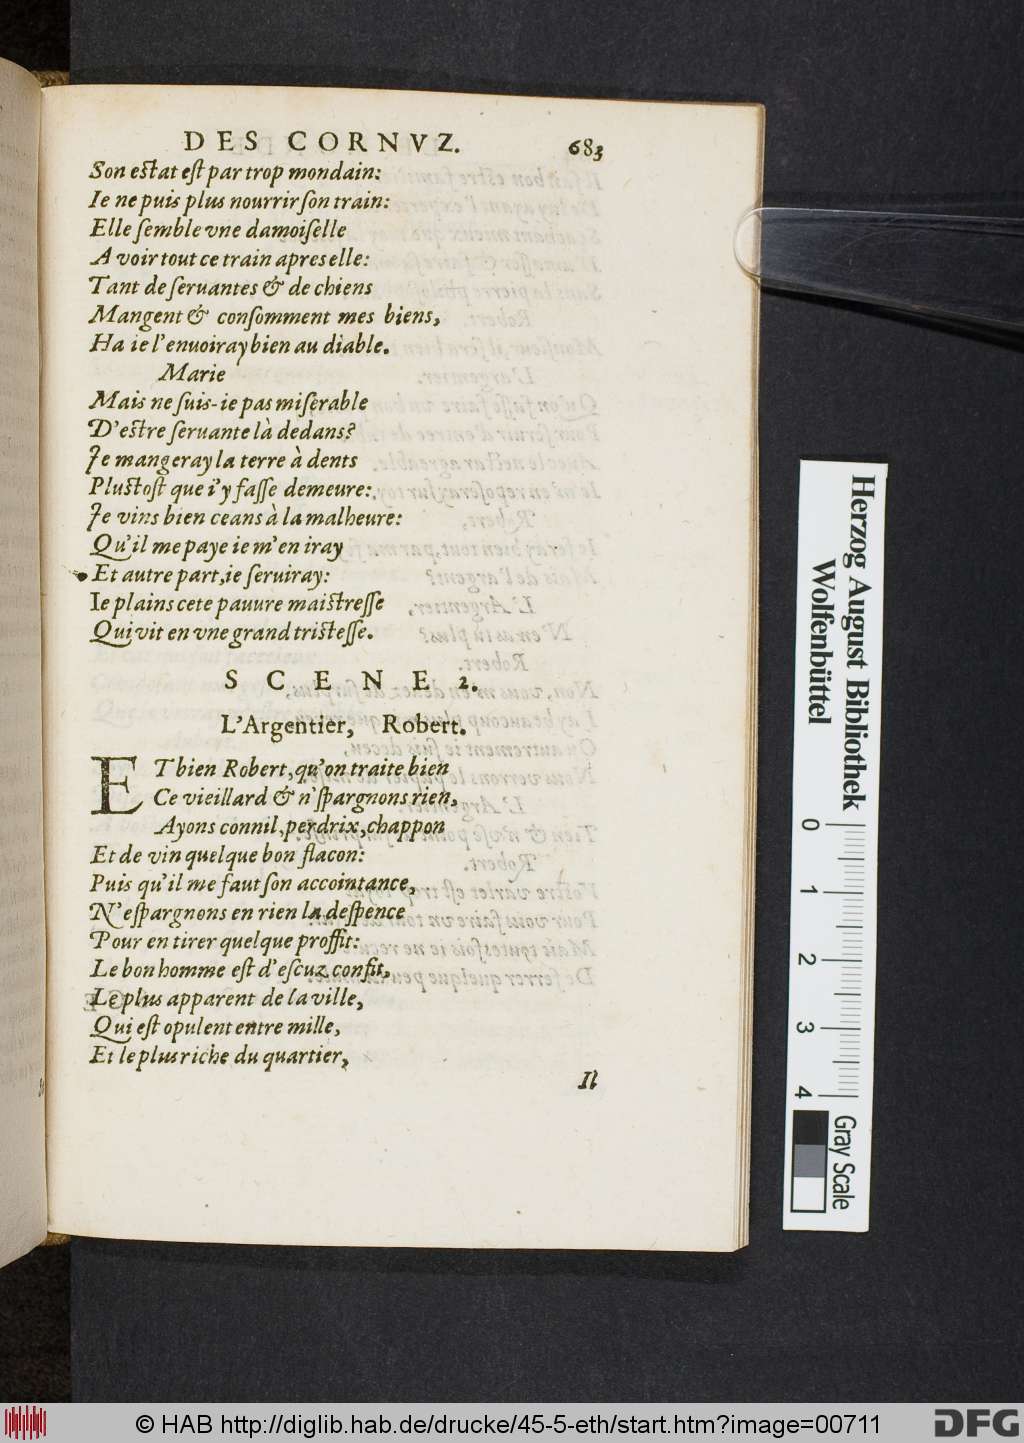 DES CORNVZ. 683
Son estat est par trop mondain:
Ie ne puis plus nourrir son train:
Elle semble vne damoiselle
A voir tout ce train apres elle:
Tant de seruantes & de chiens
Mangent & consomment mes biens,
Ha ie l'enuoiray bien au diable.
Marie
Mais ne suis-ie pas miserable
D'estre seruante là dedans?
Je mangeray la terre à dents
Plustost que i'y fasse demeure:
Je vins bien ceans à la malheure:
Qu'il me paye ie m'en iray
Et autre part, ie seruiray:
Ie plains cete pauure maistresse
Qui vit en vne grand tristesse.
SCENE 2.
L'Argentier, Robert.
ET bien Robert, qu'on traite bien
Ce vieillard & n'spargnons rien,
Ayons connil, perdrix, chappon
Et de vin quelque bon flacon:
Puis qu'il me faut son accointance,
N'espargnons en rien la despence
Pour en tirer quelque proffit:
Le bon homme est d'escuz confit,
Le plus apparent de la ville,
Qui est opulent entre mille,
Et le plus riche du quartier,
Il
Herzog August Bibliothek
Wolfenbüttel
0 1 2 3 4
Gray Scale
© HAB http://diglib.hab.de/drucke/45-5-eth/start.htm?image=00711
DFG